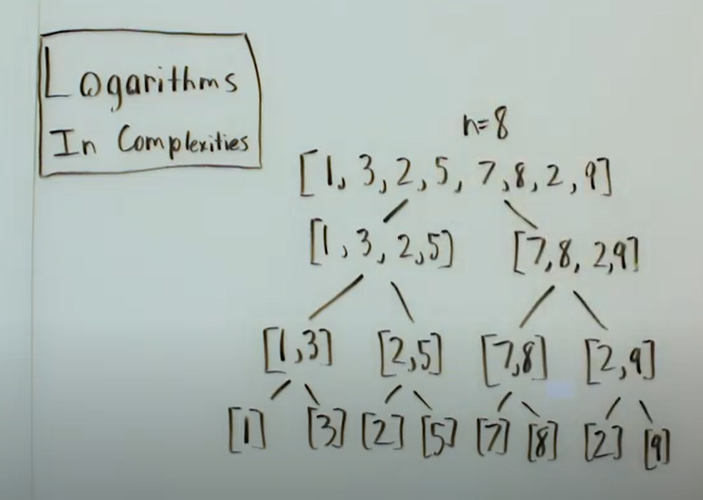 Logarithms
In Complexities
n=8
[1, 3, 2, 5, 7, 8, 2, 9]
[1, 3, 2, 5] [7, 8, 2, 9]
[1, 3] [2, 5] [7, 8] [2, 9]
[1] [3] [2] [5] [7] [8] [2] [9]